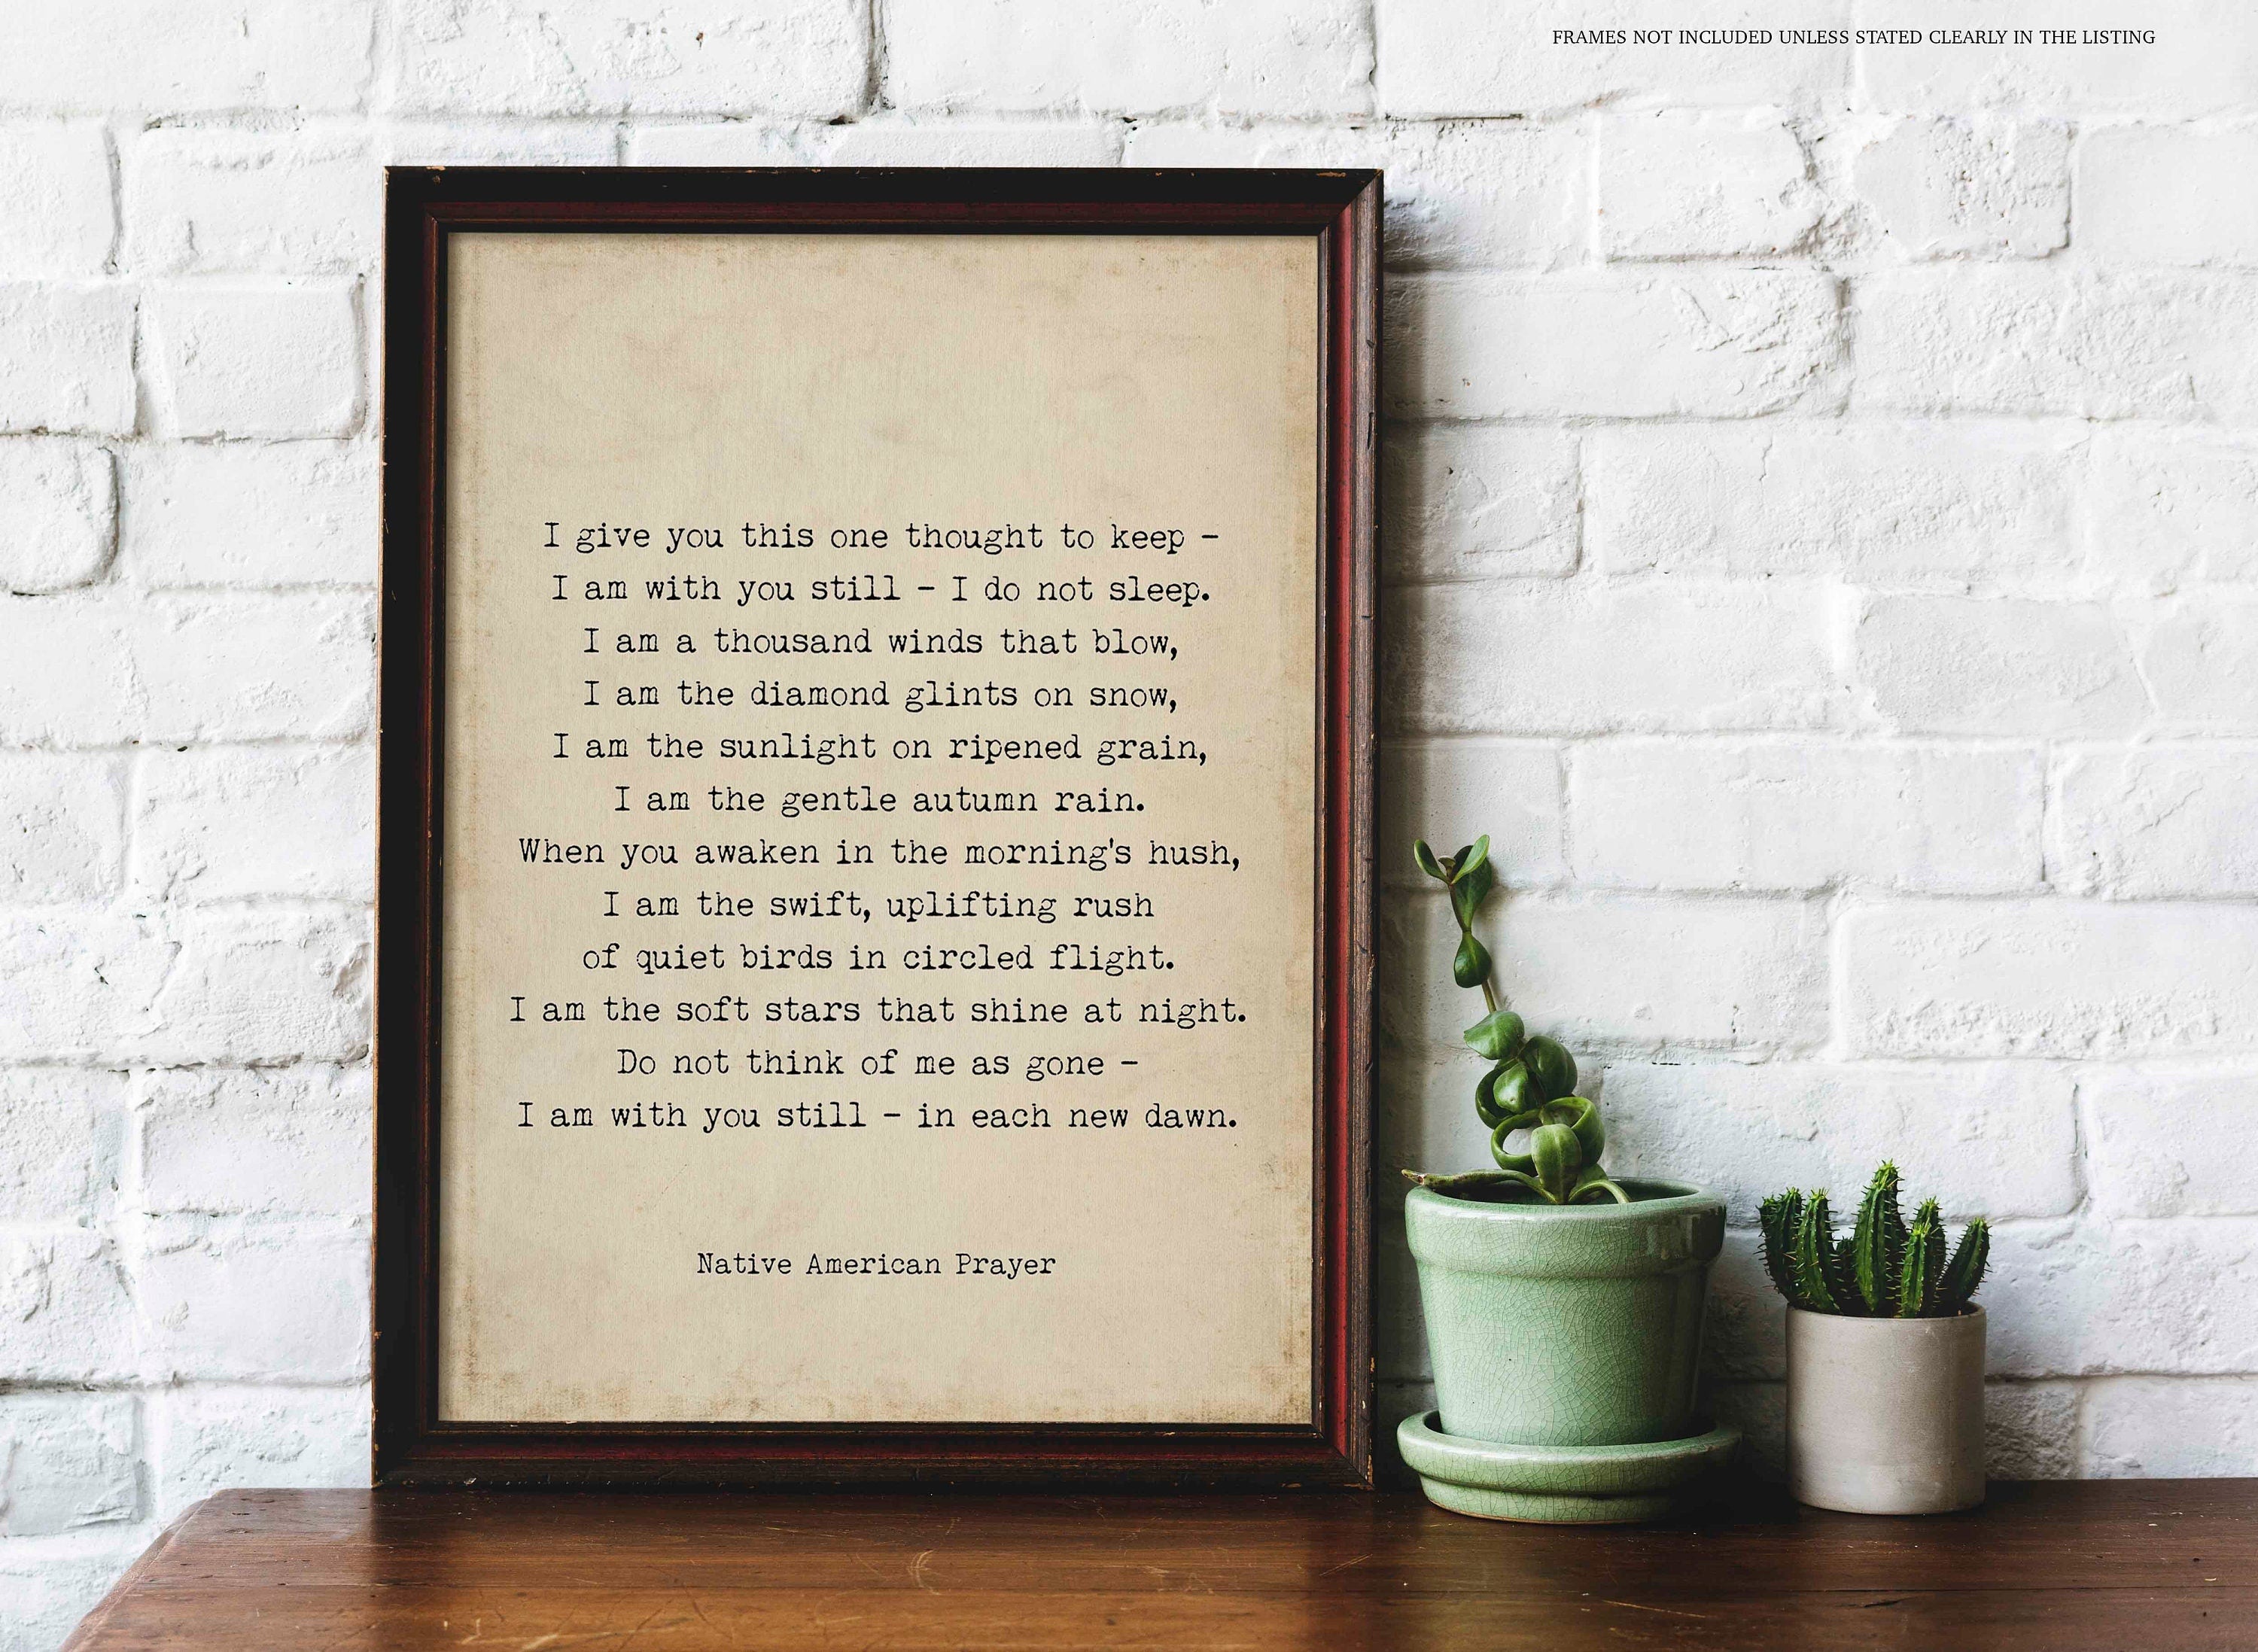 FRAMES NOT INCLUDED UNLESS STATED CLEARLY IN THE LISTING
I give you this one thought to keep –
I am with you still – I do not sleep.
I am a thousand winds that blow,
I am the diamond glints on snow,
I am the sunlight on ripened grain,
I am the gentle autumn rain.
When you awaken in the morning's hush,
I am the swift, uplifting rush
of quiet birds in circled flight.
I am the soft stars that shine at night.
Do not think of me as gone –
I am with you still – in each new dawn.
Native American Prayer